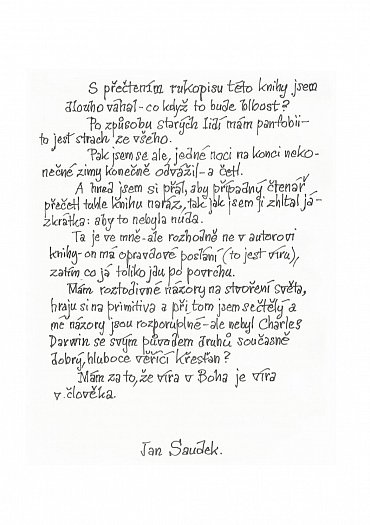 S přečtením rukopisu této knihy jsem
dlouho váhal - co když to bude blbost?
Po způsobu starých lidí mám pantobii -
to jest strach ze všeho.
Pak jsem se ale, jedné noci na konci neko-
nečné zimy konečně odvážil - a četl.
A hned jsem si přál, aby případný čtenář
přečetl tuhle knihu naráz, tak jak jsem ji zhltal já -
zkrátka: aby to nebyla nuda.
Ta je ve mně - ale rozhodně ne v autorovi
knihy - on má opravdové poslání (to jest víru),
zatím co já toliko jdu po povrchu.
Mám roztodivné názory na stvoření světa,
hraju si na primitiva a při tom jsem sečtělý a
mé názory jsou rozporuplné - ale nebyl Charles
Darwin se svým původem druhů současně
dobrý, hluboce věřící křesťan?
Mám za to, že víra v Boha je víra
v člověka.
Jan Saudek.